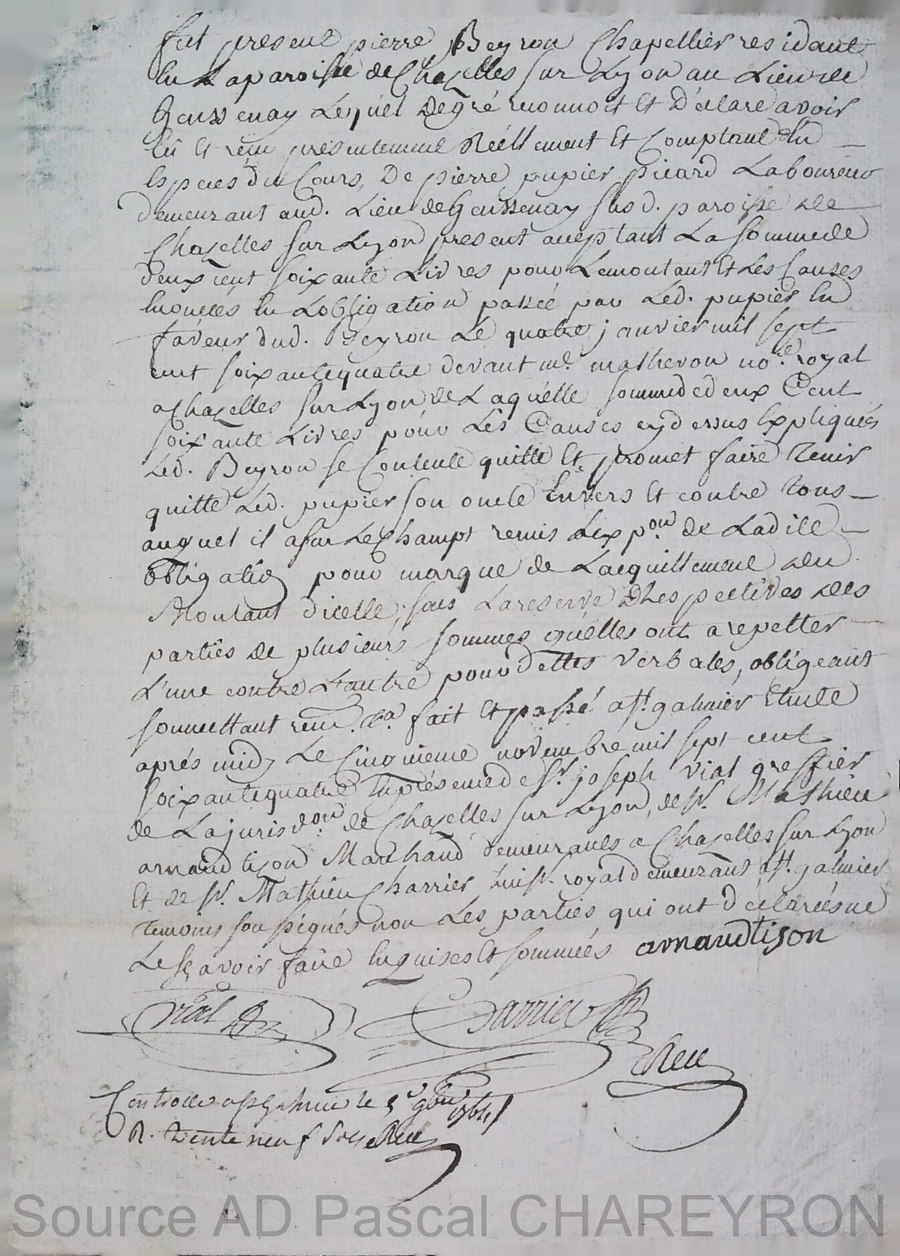 fut present pierre Beyron Chapellier residant
En Laparoisse de Chazelles sur Lyon au Lieu de
Geussenay Lequel de gré reconnoit Et déclare avoir
Eü Et reçu presentement Réellement Et Comptant En
Especes du Cours, De pierre pupier picard Laboureur
demeurant aud. Lieu de Geussenay susd. paroisse de
Chazelles sur Lyon present aceptant La somme de
deux cent soixante Livres pour Lemontant Et Les Causes
Enoncées En Lobligation passée par Led. pupier En
faveur dud. Beyron Le quatre janvier mil sept
cent soixante quatre devant me. matheron nore. royal
a Chazelles sur Lyon de Laquelle somme de deux Cent
soixante Livres pour Les Causes cy dessus Expliquées
Led. Beyron se Contente quitte Et promet faire tenir
quitte Led. pupier son oncle Envers Et contre tous
auquel il a sur Lechampt remis Lexpon. de Ladite
obligatio pour marque de Lacquittement du
Montant d'icelle, sans Lareserve des
parties de plusieurs sommes quelles ont a repetter
L'une contre L'autre pour dettes verbales, obligeant
soumettant renr. ca. fait Et passé a St. galmier Etude
après midy Le Cinquieme novembre mil sept cent
soixante quatre En présence de Sr. joseph vial greffier
de La jurisdon. de Chazelles sur Lyon, de Sr. Mathieu
arnaud tison Marchand demeurants a Chazelles sur Lyon
Et de Sr. Mathieu Charrier huisr. royal demeurant a St. galmier
temoins soussignés non Les parties qui ont déclarées ne
Le sçavoir faire Enquises Et sommées arnaudtison
vial Charrier
Reu
Controllé a St galmier le 5e 9bre 1764
R. trente neuf sols Reu
Source AD Pascal CHAREYRON